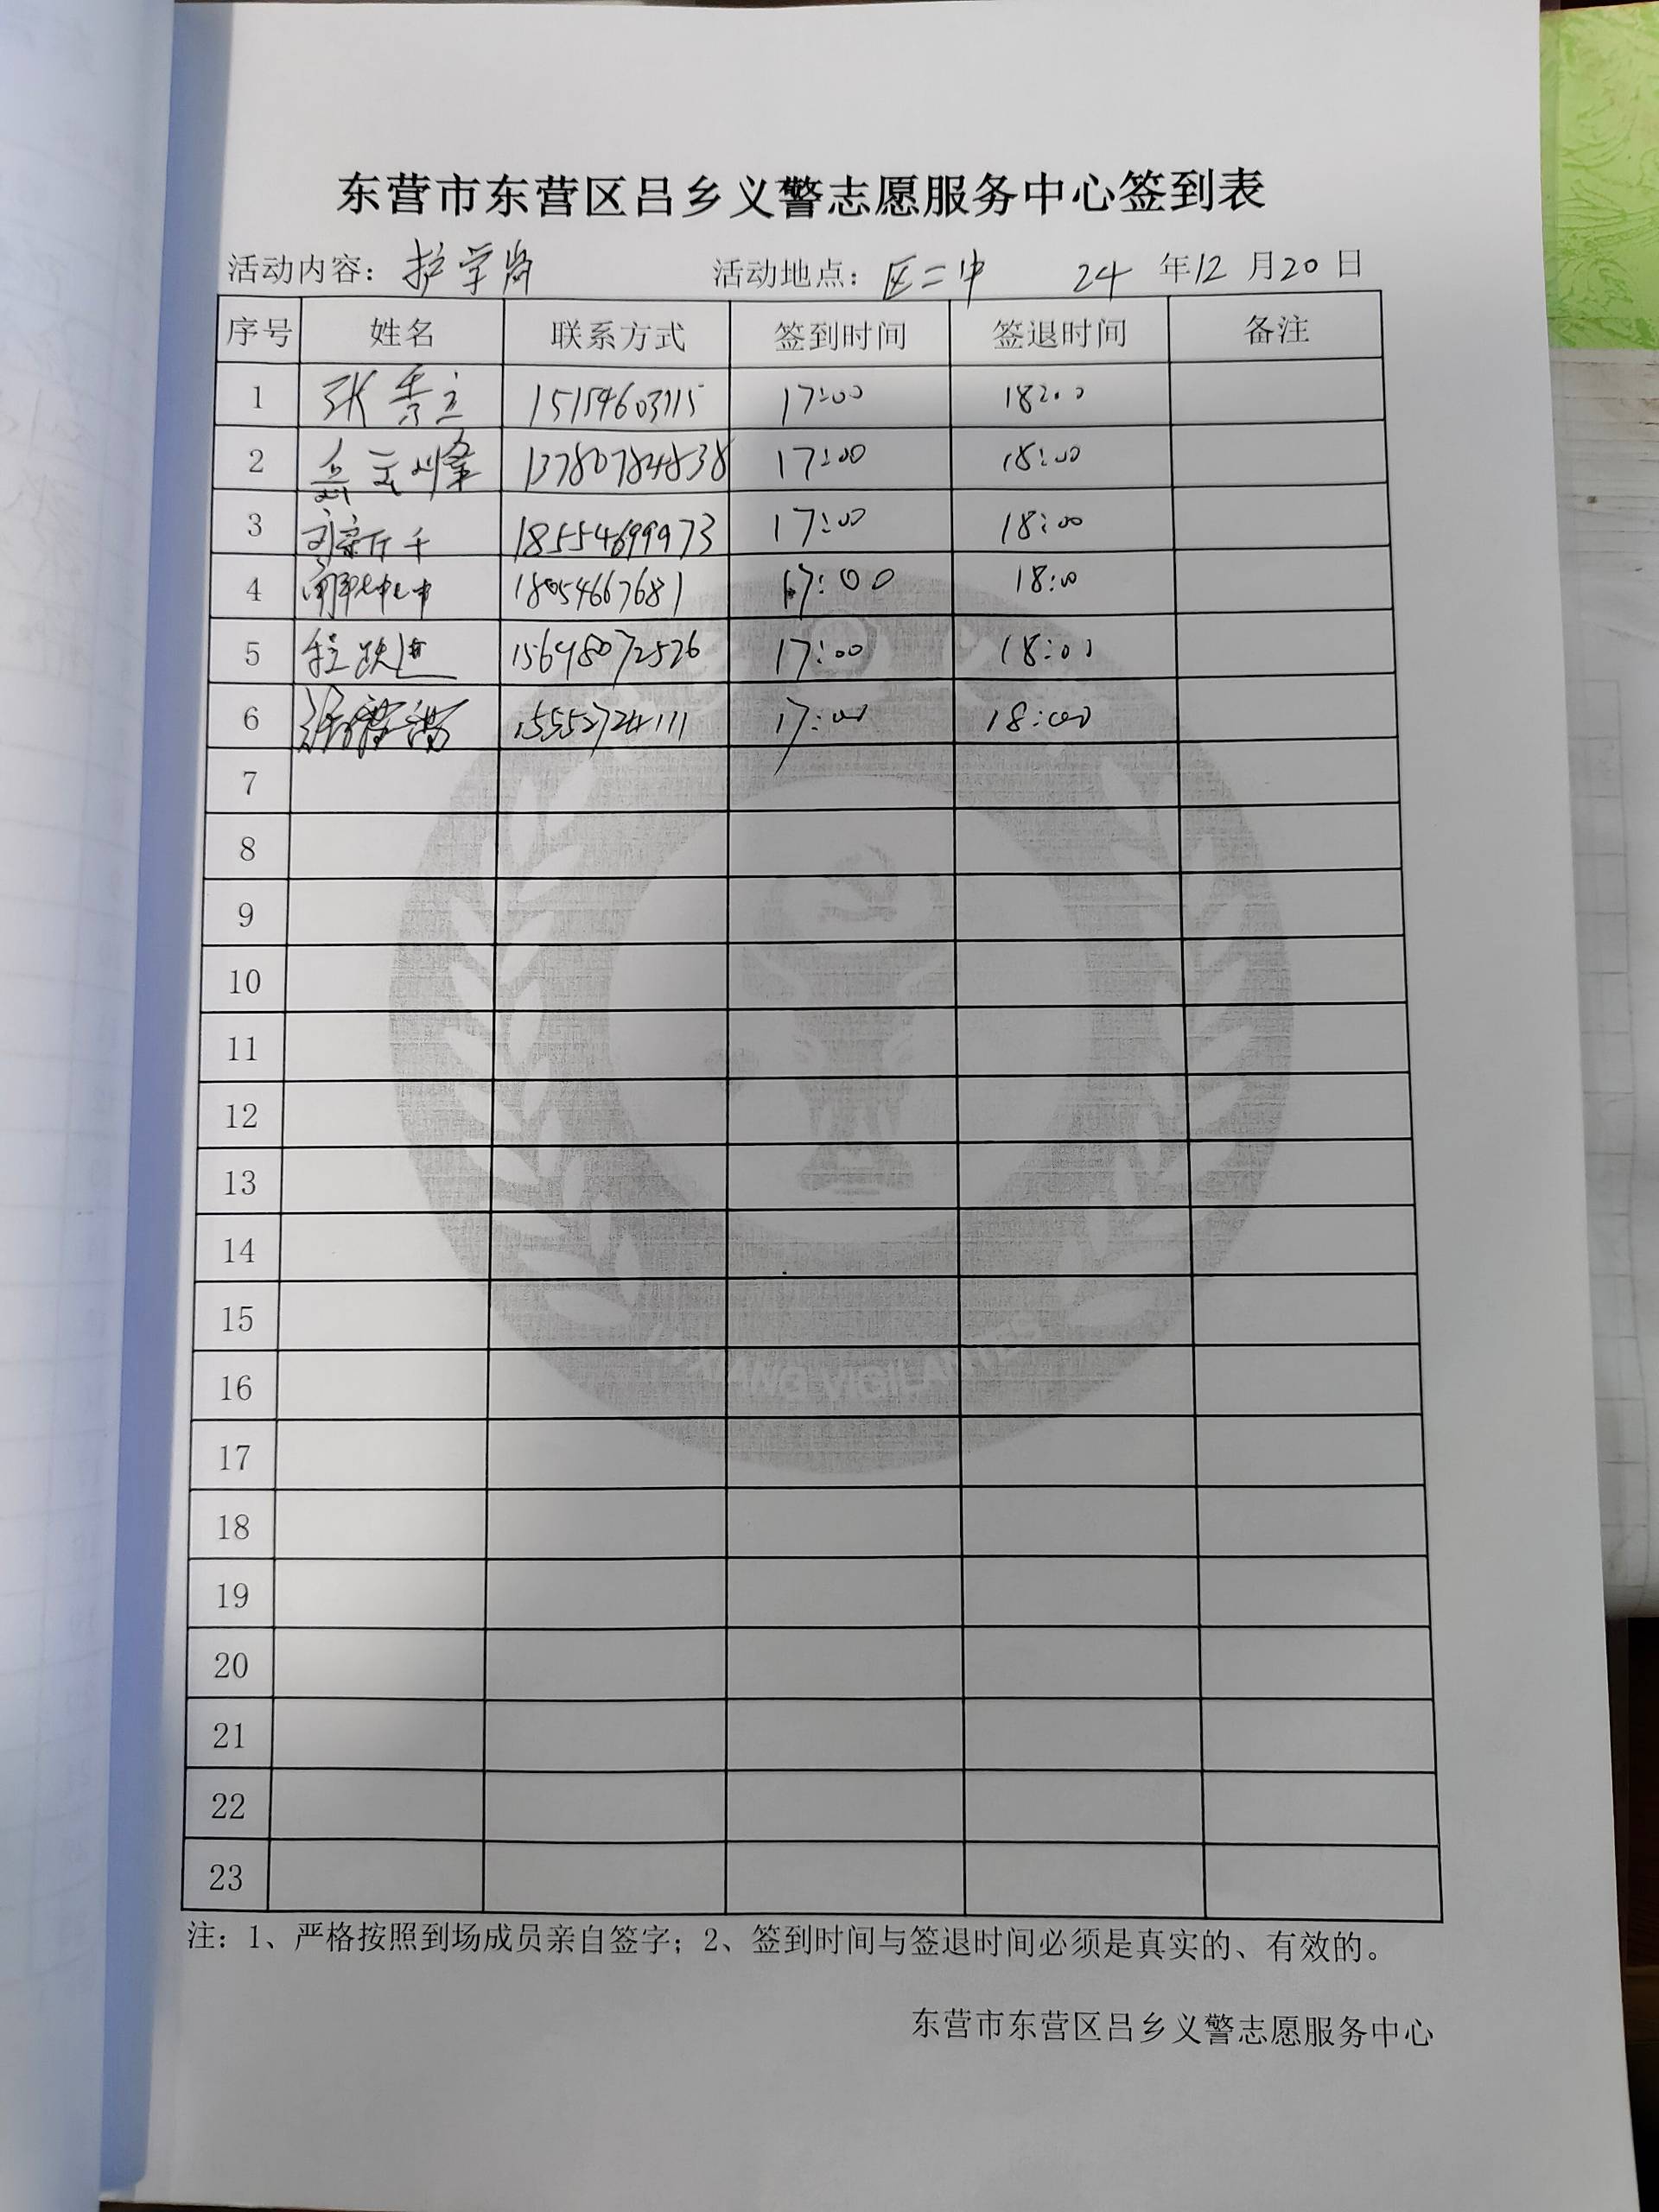 东营市东营区吕乡义警志愿服务中心签到表
活动内容：护学岗 活动地点：区二中 24年12月20日
序号 姓名 联系方式 签到时间 签退时间 备注
1 张秀立 15154603115 17:00 18:00
2 岳云峰 13780784838 17:00 18:00
3 18554699973 17:00 18:00
4 18054667681 17:00 18:00
5 程跃进 15698072526 17:00 18:00
6 15552724111 17:00 18:00
7
8
9
10
11
12
13
14
15
16
17
18
19
20
21
22
23
LUXIANG VIGILANTES
注：1、严格按照到场成员亲自签字；2、签到时间与签退时间必须是真实的、有效的。
东营市东营区吕乡义警志愿服务中心